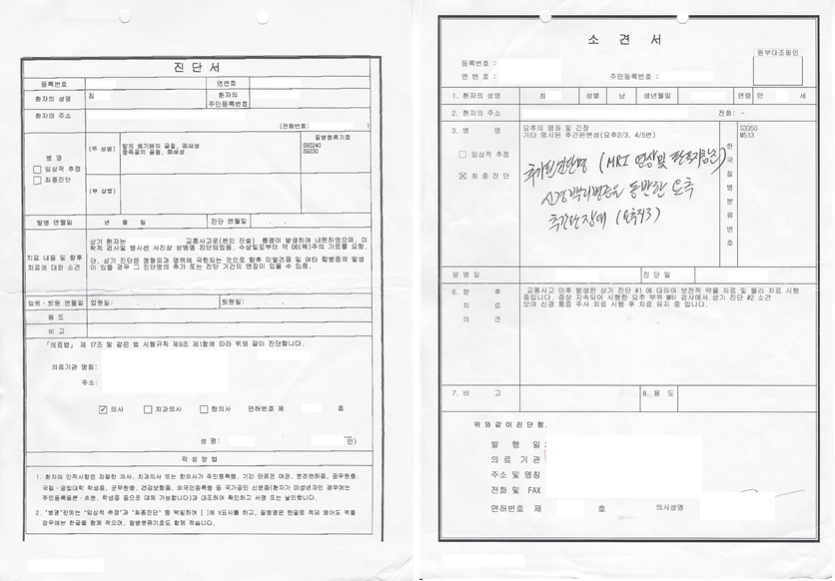 진 단 서
등록번호
연번호
환자의 성명
최
환자의
주민등록번호
환자의 주소
(전화번호:
병 명
임상적 추정
최종진단
(주 상병)
발의 발기뼈의 골절, 폐쇄성
중족골의 골절, 폐쇄성
질병분류기호
S92240
S9230
(부 상병)
발병 연월일
년 월 일
진단 연월일
치료 내용 및 향후
치료에 대한 소견
상기 환자는 교통사고로(본인 진술) 통증이 발생하여 내원하였으며, 이
학적 검사및 방사선 사진상 상병명 진단되었음. 수상일로부터 약 06(육)주의 가료를 요함.
단, 상기 진단은 정형외과 영역에 국한되는 것으로 향후 미발견증 및 여타 합병증의 발생
이 있을 경우 그 진단명의 추가 또는 진단 기간의 연장이 있을 수 있음.
입원·퇴원 연월일
입원일:
퇴원일:
용 도
비 고
「의료법」 제 17조 및 같은 법 시행규칙 제9조 제1항에 따라 위와 같이 진단합니다.
의료기관 명칭:
주소:
의사 치과의사 한의사 면허번호 제 호
성 명:
인)
작 성 방 법
1. 환자의 인적사항은 관할한 의사, 치과의사 또는 한의사가 주민등록증, 기간 만료전 여권, 운전면허증, 공무원증,
국립·공립대학 학생증, 군무원증, 건강보험증, 외국인등록증 등 국가공인 신분증(환자가 미성년자인 경우에는
주민등록등본·초본, 학생증 등으로 대체 가능합니다)과 대조하여 확인하고 서명 또는 날인합니다.
2. "병명"란에는 "임상적 추정"과 "최종진단" 중 택일하여 [ ]에 V표시를 하고, 질병명은 한글로 적되 영어도 적을
경우에는 한글을 함께 적으며, 질병분류기호도 함께 적습니다.
소 견 서
원부대조필인
등록번호 :
연 번 호 :
주민등록번호 :
1. 환자의 성명
최
성별
남
생년월일
연령
만 세
2. 환자의 주소
전화: -
3. 병 명
임상적 추정
최 종 진 단
요추의 염좌 및 긴장
기타 명시된 추간판변성(요추2/3, 4/5번)
추가된 진단명 (MRI 영상 및 판독지참조)
신경 뿌리병증을 동반한 요추
추간판 장애
한국질병분류번호
S3350
M513
발 병 일
진 단 일
6. 향 후
의 견
교통사고 이후 발생한 상기 진단 #1 에 대하여 보전적 약물 치료 및 물리 치료 시행
중입니다. 증상 지속되어 시행한 요추 부위 MRI 검사에서 상기 진단 #2 소견
보여 신경 통증 주사 치료 시행 후 치료 유지 중 입니다.
7. 비 고
8. 용 도
위 와 같 이 진 단 함.
발 행 일 :
의 료 기 관
주소 및 명칭
전화 및 FAX
면허번호 제 호
의사성명